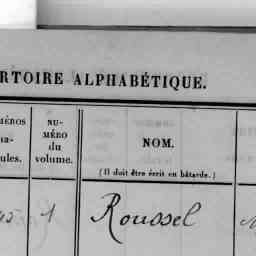 RTOIRE ALPHABÉTIQUE.
MÉROS
NU-
MÉRO
du
volume.
NOM.
(Il doit être écrit en bâtarde.)
ules.
1 Roussel